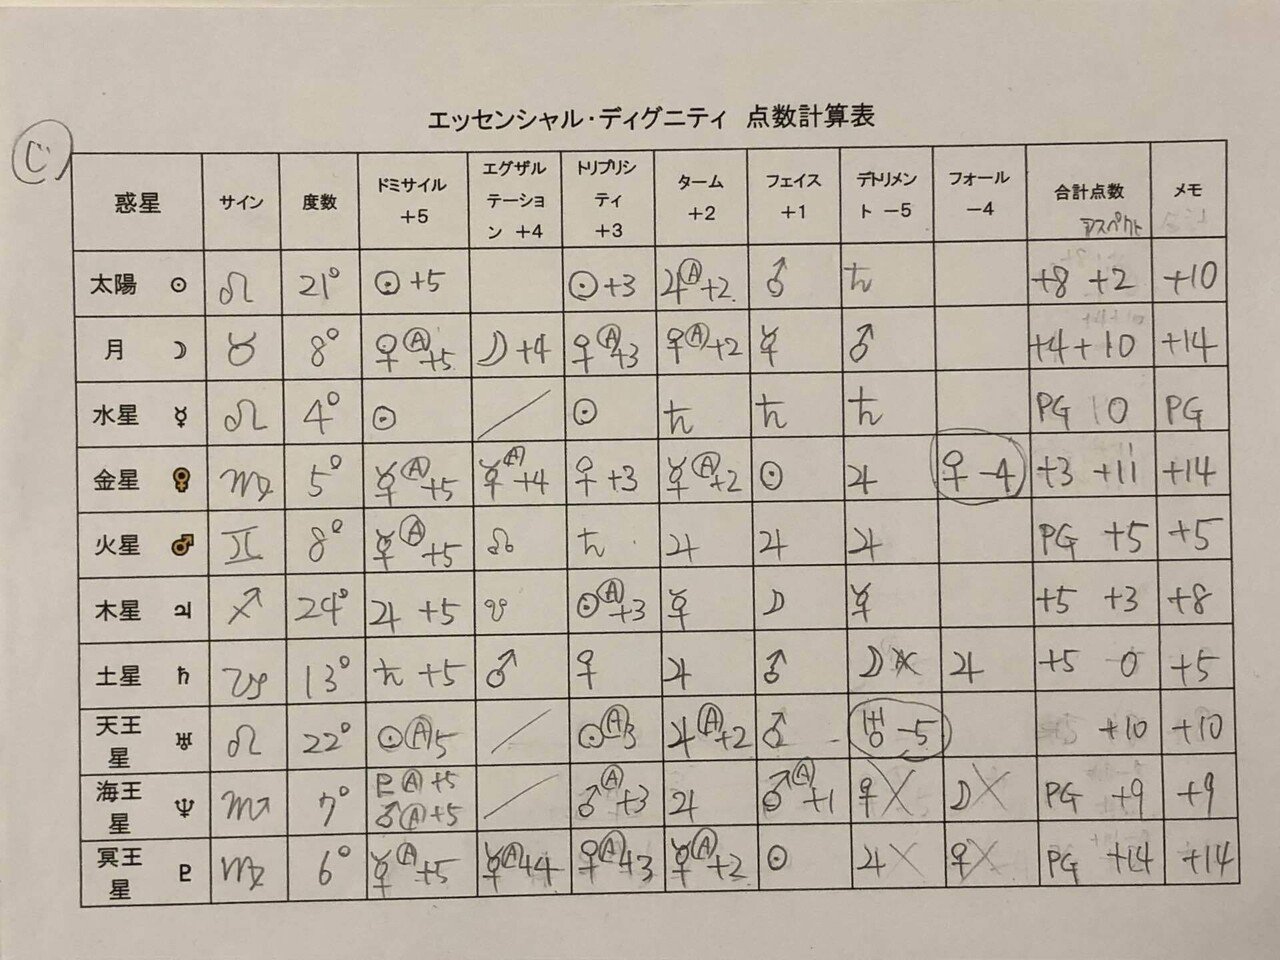 エッセンシャル・ディグニティ 点数計算表
惑星 サイン 度数 ドミサイル +5 エグザルテーション +4 トリプリシティ +3 ターム +2 フェイス +1 デトリメント −5 フォール −4 合計点数 アスペクト メモ
太陽 ☉ ♌ 21° ☉+5 ☉+3 ♃Ⓐ+2 ♂ ♄ +8 +2 +10
月 ☽ ♉ 8° ♀Ⓐ+5 ☽+4 ♀Ⓐ+3 ♀Ⓐ+2 ☿ ♂ +4+10 +14
水星 ☿ ♌ 4° ☉ ／ ☉ ♄ ♄ ♄ PG 0 PG
金星 ♀ ♍ 5° ☿Ⓐ+5 ☿Ⓐ+4 ♀+3 ☿Ⓐ+2 ☉ ♃ ♀−4 +3 +11 +14
火星 ♂ ♊ 8° ☿Ⓐ+5 ☊ ♄ ♃ ♃ ♃ PG +5 +5
木星 ♃ ♐ 24° ♃+5 ☋ ☉Ⓐ+3 ☿ ☽ ☿ +5 +3 +8
土星 ♄ ♑ 13° ♄+5 ♂ ♀ ♃ ♂ ☽× ♃ +5 0 +5
天王星 ♅ ♌ 22° ☉Ⓐ5 ／ ☉Ⓐ3 ♃Ⓐ+2 ♂ ♅−5 +10 +10
海王星 ♆ ♏ 7° ♇Ⓐ+5 ♂Ⓐ+5 ／ ♂Ⓐ+3 ♃ ♂Ⓐ+1 ♀× ☽× PG +9 +9
冥王星 ♇ ♍ 6° ☿Ⓐ+5 ☿Ⓐ+4 ♀Ⓐ+3 ☿Ⓐ+2 ☉ ♃× ♀× PG +14 +14